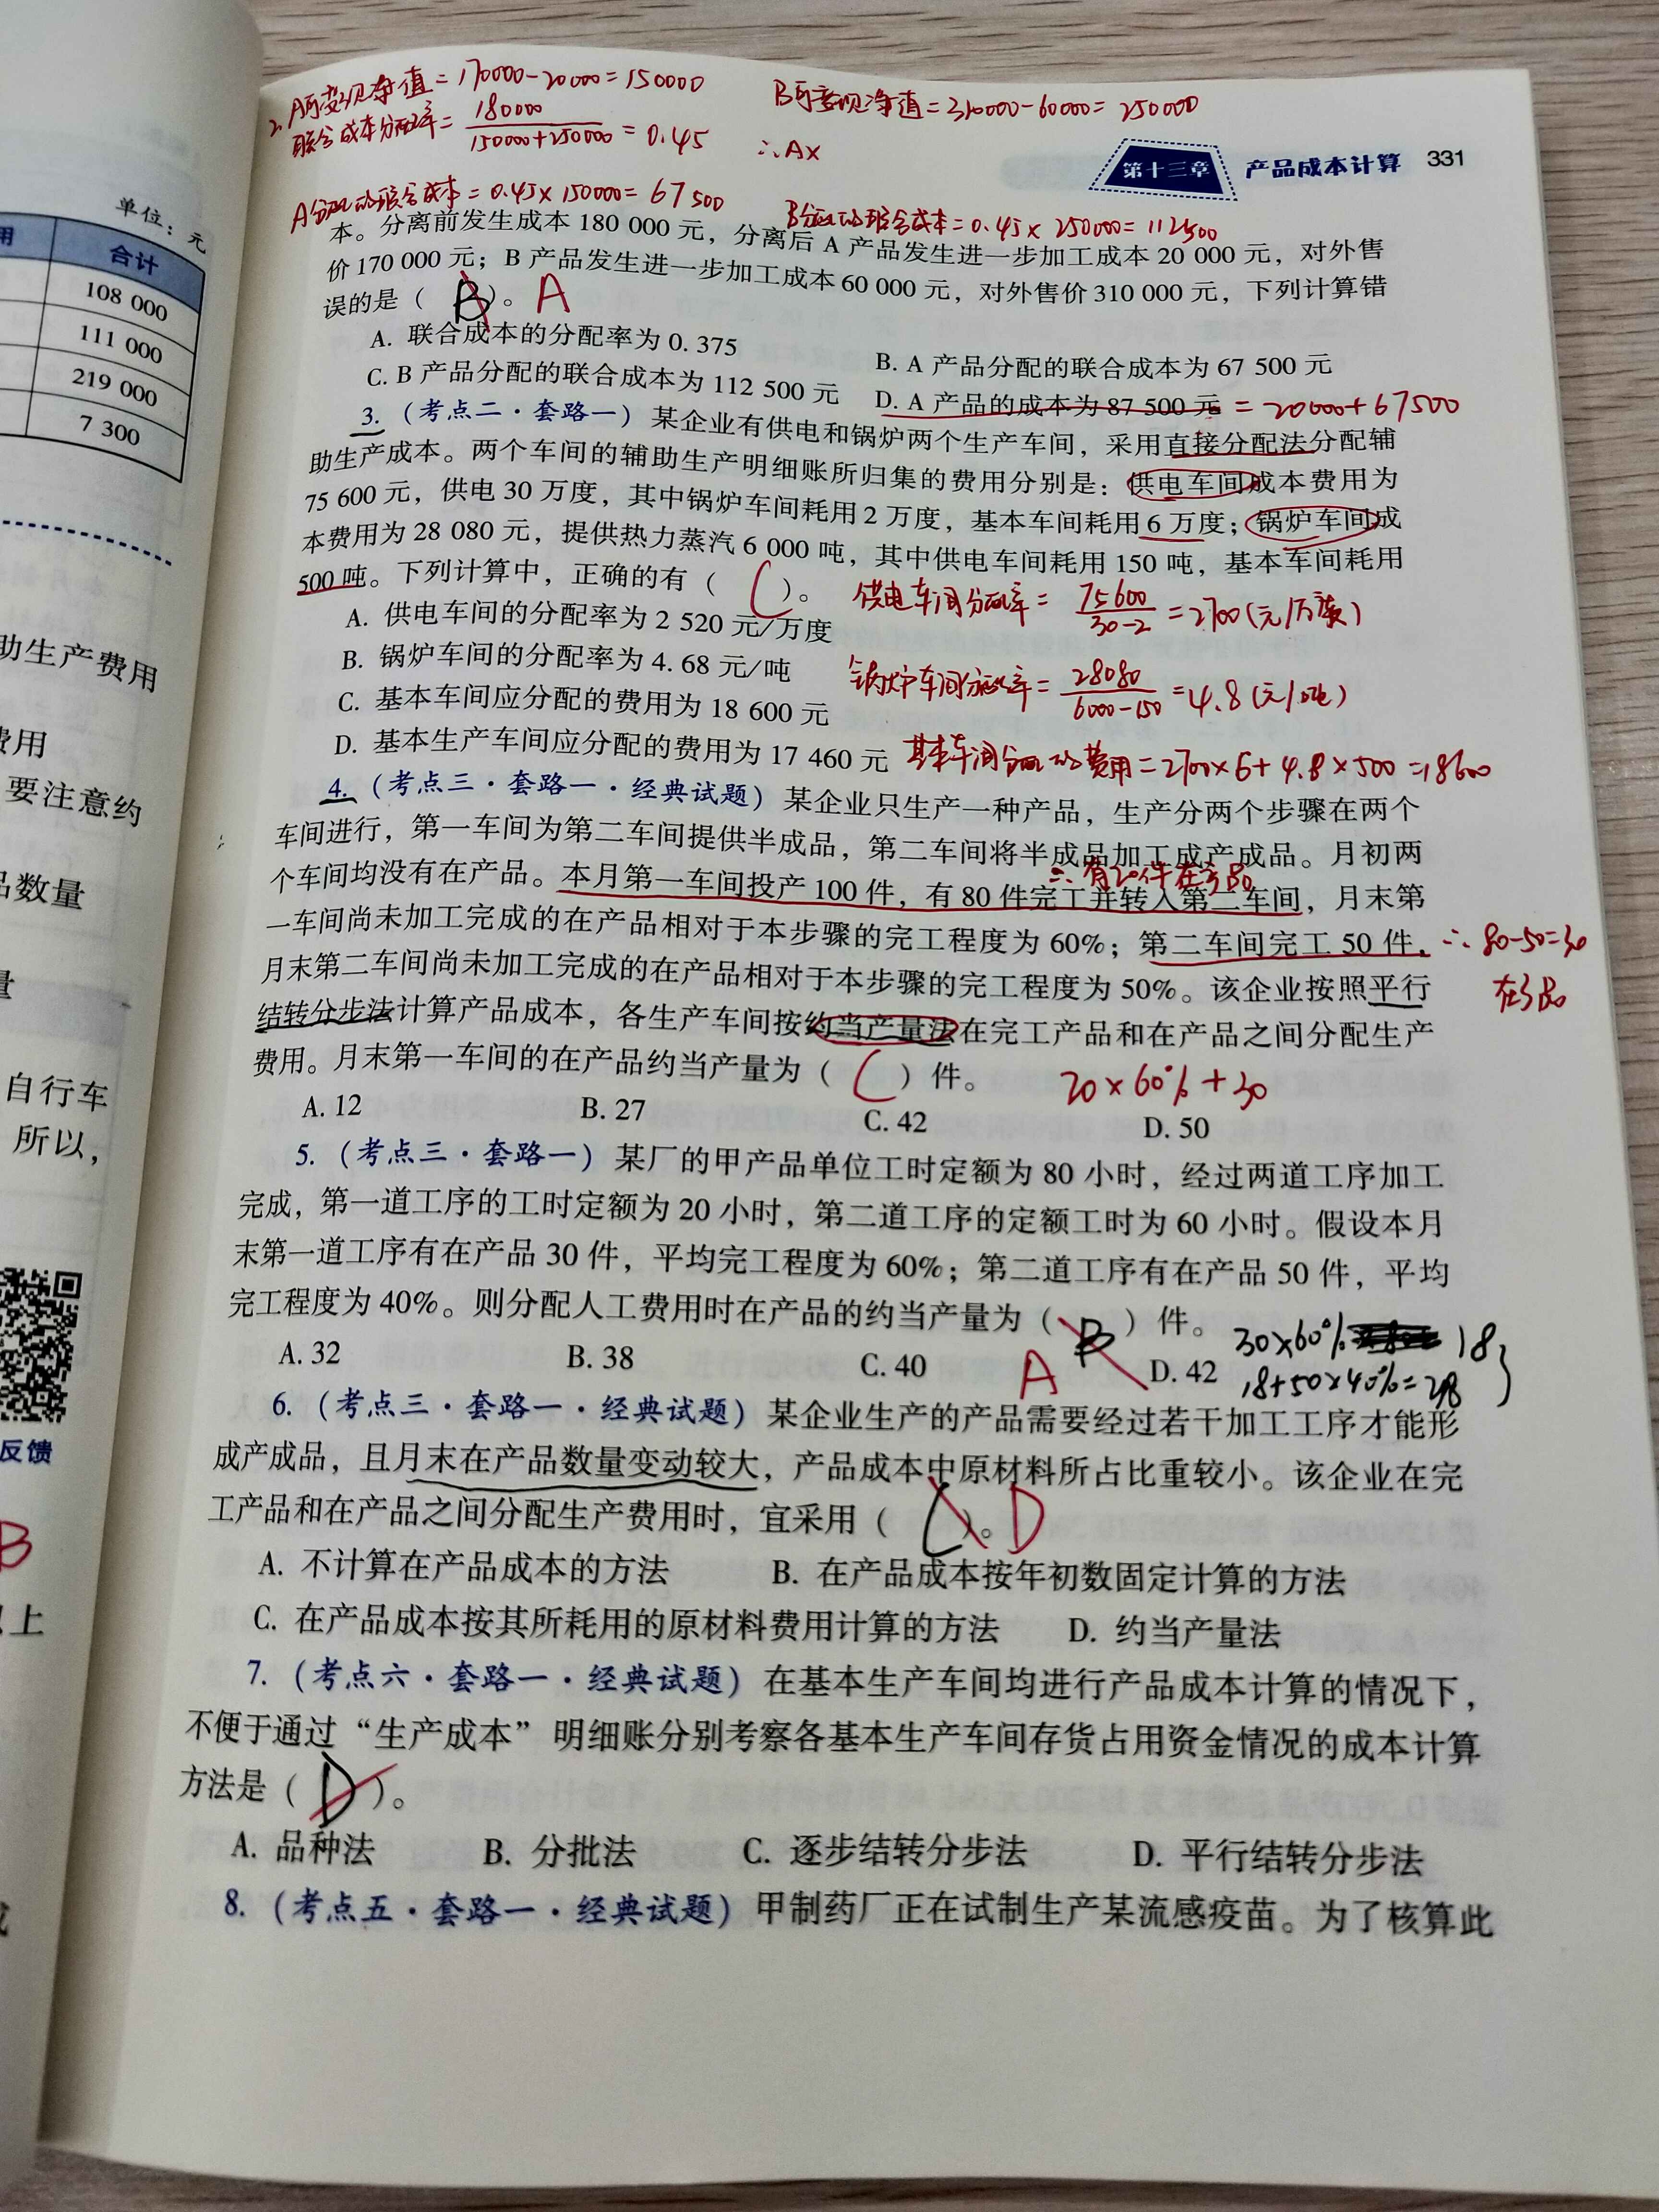 单位：元
用 合计
108 000
111 000
219 000
7 300
助生产费用
费用
要注意约
品数量
量
自行车
所以，
反馈
B
以上
2. A可变现净值=170000-20000=150000
B可变现净值=310000-60000=250000
联合成本分配率=180000/(150000+250000)=0.45
∴A×
第十三章 产品成本计算 331
A分配的联合成本=0.45×150000=67500
B分配的联合成本=0.45×250000=112500
本。分离前发生成本 180 000 元，分离后 A 产品发生进一步加工成本 20 000 元，对外售
价 170 000 元；B 产品发生进一步加工成本 60 000 元，对外售价 310 000 元，下列计算错
误的是（ B ）。 A
A. 联合成本的分配率为 0. 375
B. A 产品分配的联合成本为 67 500 元
C. B 产品分配的联合成本为 112 500 元
D. A 产品的成本为 87 500 元 =20000+67500
3. （考点二·套路一）某企业有供电和锅炉两个生产车间，采用直接分配法分配辅
助生产成本。两个车间的辅助生产明细账所归集的费用分别是：供电车间成本费用为
75 600 元，供电 30 万度，其中锅炉车间耗用 2 万度，基本车间耗用 6 万度；锅炉车间成
本费用为 28 080 元，提供热力蒸汽 6 000 吨，其中供电车间耗用 150 吨，基本车间耗用
500 吨。下列计算中，正确的有（ C ）。
供电车间分配率=75600/(30-2)=2700(元/万度)
A. 供电车间的分配率为 2 520 元/万度
B. 锅炉车间的分配率为 4. 68 元/吨
锅炉车间分配率=28080/(6000-150)=4.8(元/吨)
C. 基本车间应分配的费用为 18 600 元
D. 基本生产车间应分配的费用为 17 460 元
基本车间分配的费用=2700×6+4.8×500=18600
4. （考点三·套路一·经典试题）某企业只生产一种产品，生产分两个步骤在两个
车间进行，第一车间为第二车间提供半成品，第二车间将半成品加工成产成品。月初两
∴有20件在产品
个车间均没有在产品。本月第一车间投产 100 件，有 80 件完工并转入第二车间，月末第
一车间尚未加工完成的在产品相对于本步骤的完工程度为 60%；第二车间完工 50 件，
∴80-50=30
在产品
月末第二车间尚未加工完成的在产品相对于本步骤的完工程度为 50%。该企业按照平行
结转分步法计算产品成本，各生产车间按约当产量法在完工产品和在产品之间分配生产
费用。月末第一车间的在产品约当产量为（ C ）件。
20×60%+30
A. 12 B. 27 C. 42 D. 50
5. （考点三·套路一）某厂的甲产品单位工时定额为 80 小时，经过两道工序加工
完成，第一道工序的工时定额为 20 小时，第二道工序的定额工时为 60 小时。假设本月
末第一道工序有在产品 30 件，平均完工程度为 60%；第二道工序有在产品 50 件，平均
完工程度为 40%。则分配人工费用时在产品的约当产量为（ B ）件。
30×60% 18
A. 32 B. 38 C. 40 A D. 42
18+50×40%=38
6. （考点三·套路一·经典试题）某企业生产的产品需要经过若干加工工序才能形
成产成品，且月末在产品数量变动较大，产品成本中原材料所占比重较小。该企业在完
工产品和在产品之间分配生产费用时，宜采用（ C ）。D
A. 不计算在产品成本的方法 B. 在产品成本按年初数固定计算的方法
C. 在产品成本按其所耗用的原材料费用计算的方法 D. 约当产量法
7. （考点六·套路一·经典试题）在基本生产车间均进行产品成本计算的情况下，
不便于通过“生产成本”明细账分别考察各基本生产车间存货占用资金情况的成本计算
方法是（ D ）。
A. 品种法 B. 分批法 C. 逐步结转分步法 D. 平行结转分步法
8. （考点五·套路一·经典试题）甲制药厂正在试制生产某流感疫苗。为了核算此